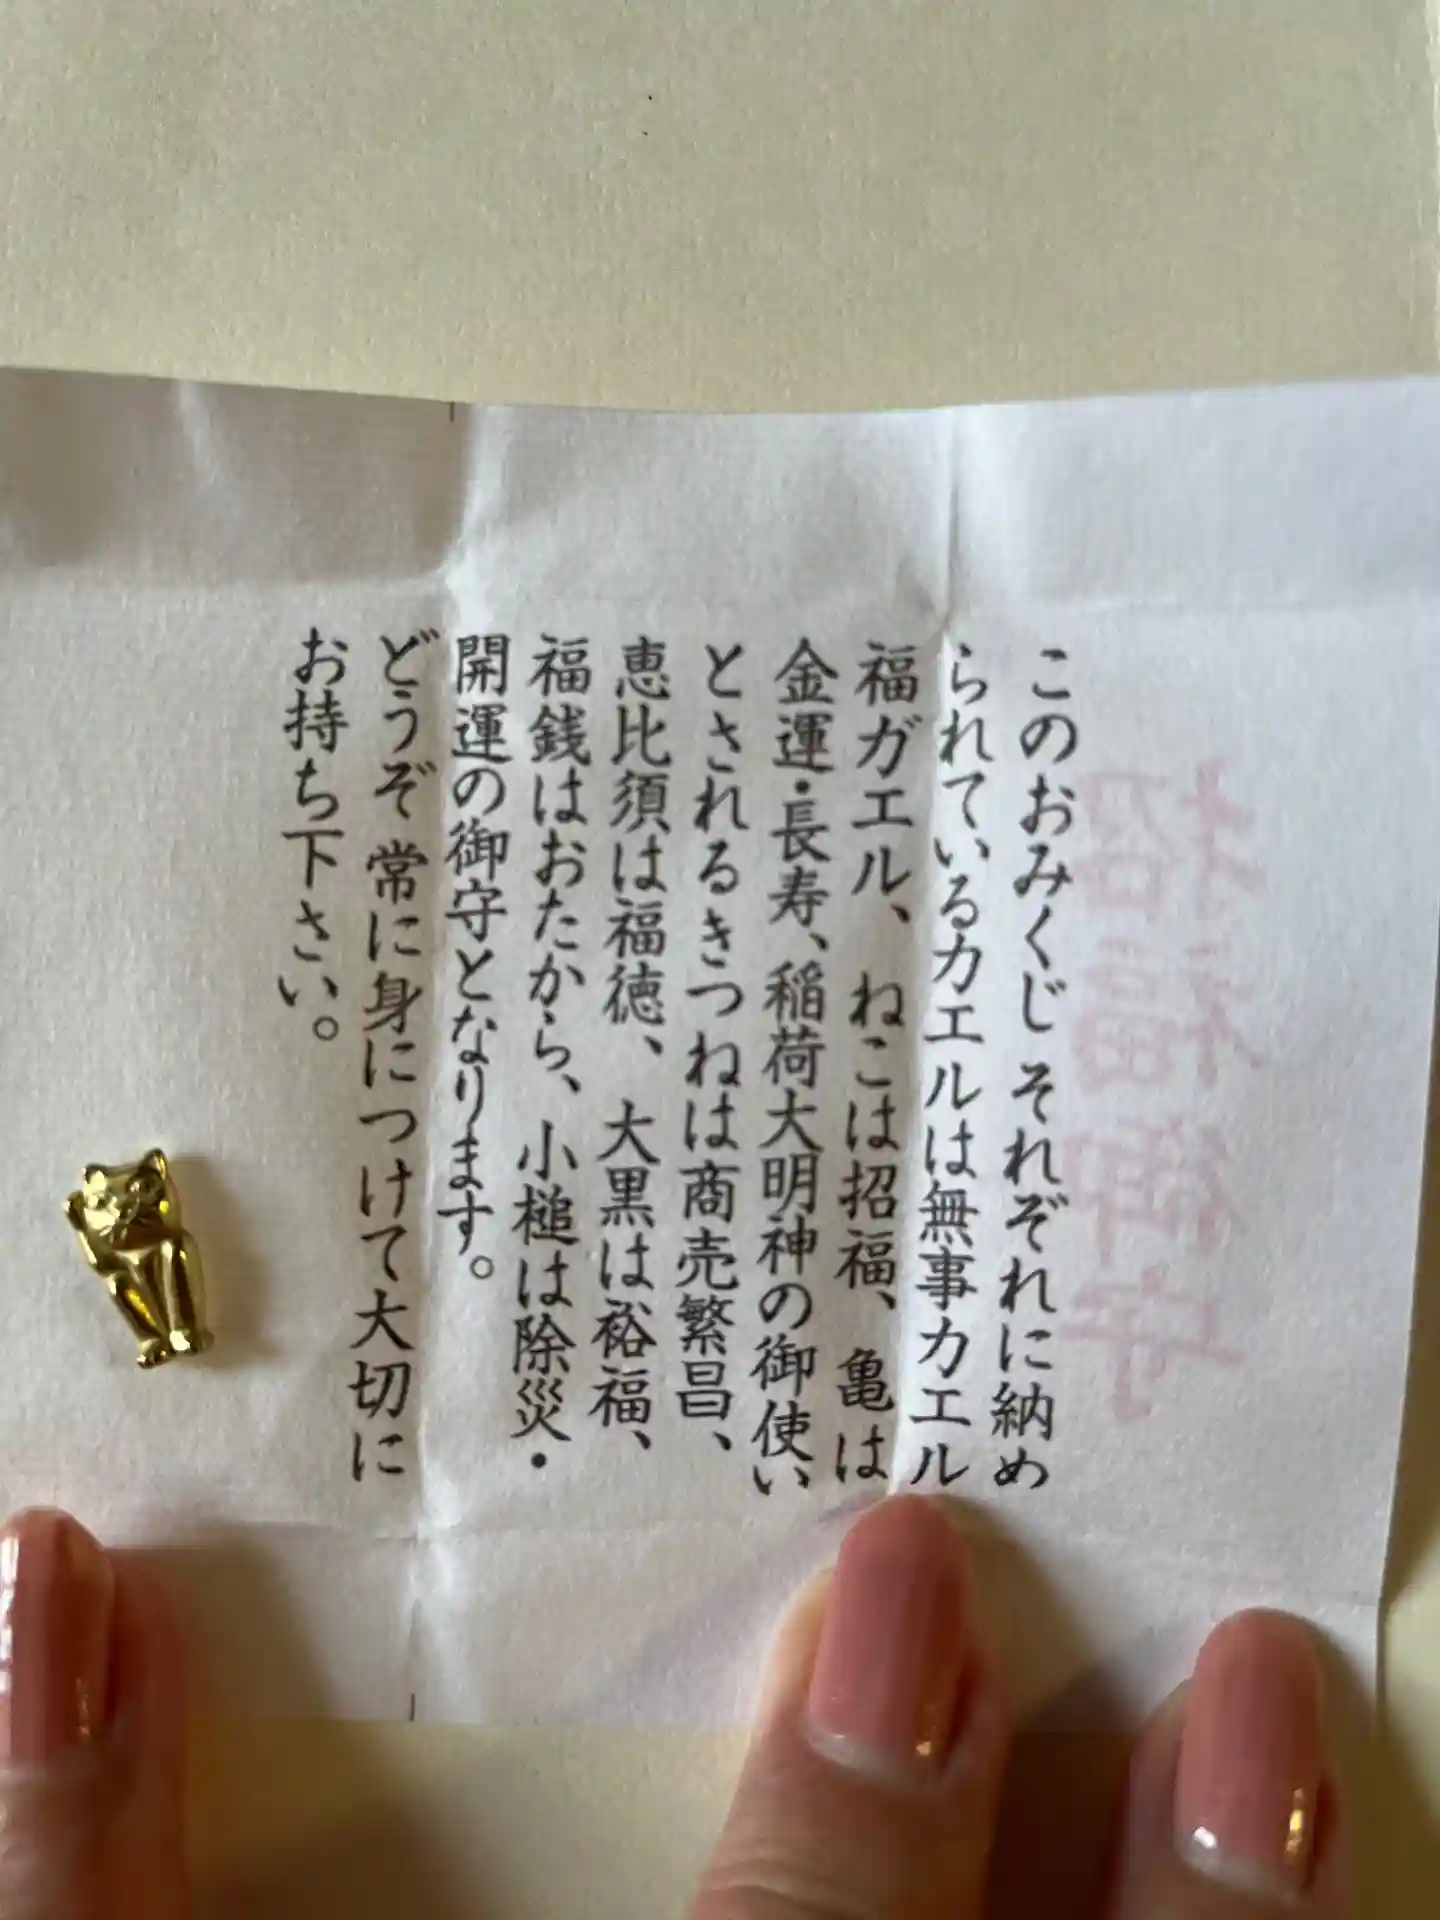 このおみくじ それぞれに納め
られているカエルは無事カエル
福ガエル、ねこは招福、亀は
金運・長寿、稲荷大明神の御使い
とされるきつねは商売繁昌、
恵比須は福徳、大黒は裕福、
福銭はおたから、小槌は除災・
開運の御守となります。
どうぞ常に身につけて大切に
お持ち下さい。